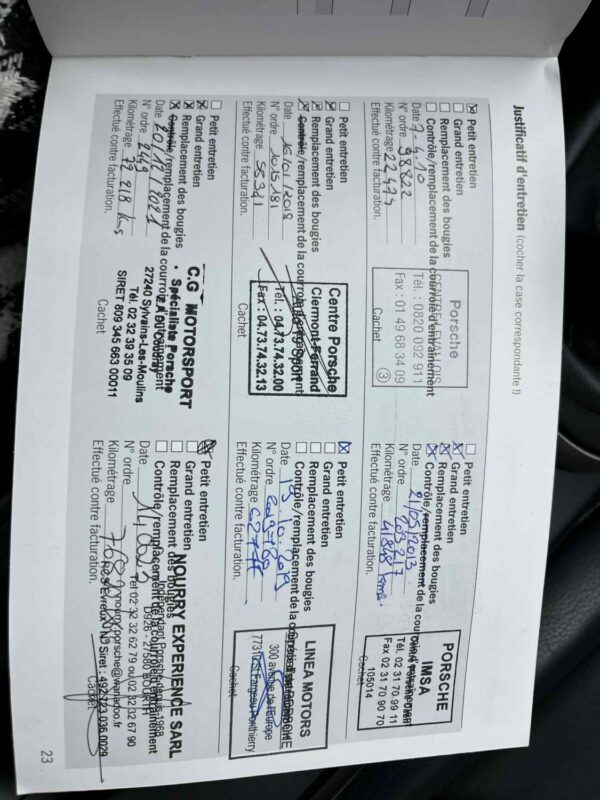 Justificatif d'entretien (cocher la case correspondante !)
Petit entretien
Grand entretien
Remplacement des bougies
Contrôle/remplacement de la courroie d'entraînement
Date 7.4.10
N° ordre 98822
Kilométrage 22474
Effectué contre facturation.
Porsche
Tél : 0820 092 911
Fax : 01 49 68 34 09
3
Cachet
Petit entretien
Grand entretien
Remplacement des bougies
Contrôle/remplacement de la courroie d'entraînement
Date 21/05/2013
N° ordre 203217
Kilométrage 41848 kms
Effectué contre facturation.
PORSCHE
IMSA
Tél. 02 31 70 99 11
Fax 02 31 70 90 70
105014
Cachet
Petit entretien
Grand entretien
Remplacement des bougies
Contrôle/remplacement de la courroie d'entraînement
Date 16/01/2018
N° ordre 1015181
Kilométrage 55341
Effectué contre facturation.
Centre Porsche
Clermont-Ferrand
Tél. : 04.73.74.32.00
Fax : 04.73.74.32.13
Cachet
Petit entretien
Grand entretien
Remplacement des bougies
Contrôle/remplacement de la
Date 13.10.2019
N° ordre
Kilométrage
Effectué contre facturation.
LINEA MOTORS
300 avenue de l'Europe
77310 St Fargeau Ponthierry
Cachet
Petit entretien
Grand entretien
Remplacement des bougies
Contrôle/remplacement de la courroie d'entraînement
Date 20/10/2021
N° ordre 2449
Kilométrage 72 218 kms
Effectué contre facturation.
C.G MOTORSPORT
• Spécialiste Porsche
27240 Sylvains-Les-Moulins
Tél. 02 32 39 35 09
SIRET 809 345 663 00011
Cachet
Petit entretien
Grand entretien
Remplacement des bougies
Contrôle/remplacement de la courroie d'entraînement
Date
N° ordre
Kilométrage
Effectué contre facturation.
NOURRY EXPERIENCE SARL
Indépendant Porsche depuis 1968
Tel 02 32 32 62 79 ou 02 32 32 67 90
nourry.porsche@wanadoo.fr
Cachet
23